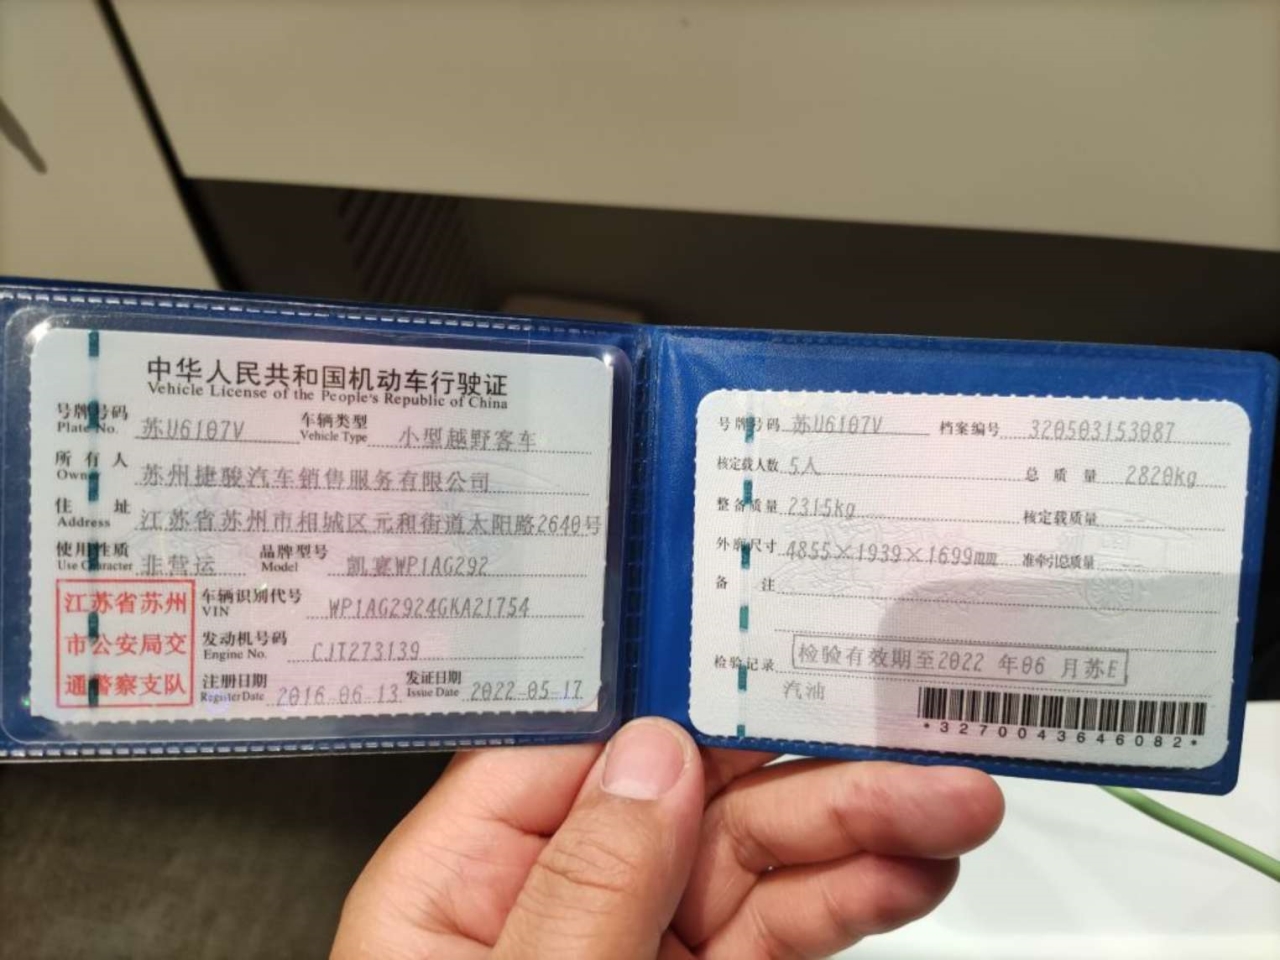 中华人民共和国机动车行驶证
Vehicle License of the People's Republic of China
号牌号码 苏U6107V 车辆类型 小型越野客车
Plate No. Vehicle Type
所有人 苏州捷骏汽车销售服务有限公司
Owner
住址 江苏省苏州市相城区元和街道太阳路2640号
Address
使用性质 非营运 品牌型号 凯宴WP1AG292
Use Character Model
江苏省苏州
市公安局交
通警察支队
车辆识别代号 WP1AG2924GKA21754
VIN
发动机号码 CJT273139
Engine No.
注册日期 2016-06-13 发证日期 2022-05-17
Register Date Issue Date
号牌号码 苏U6107V 档案编号 320503153087
核定载人数 5人 总质量 2820kg
整备质量 2315kg 核定载质量
外廓尺寸 4855×1939×1699mm 准牵引总质量
备注
检验记录 检验有效期至2022年06月苏E
汽油
*3270043646082*